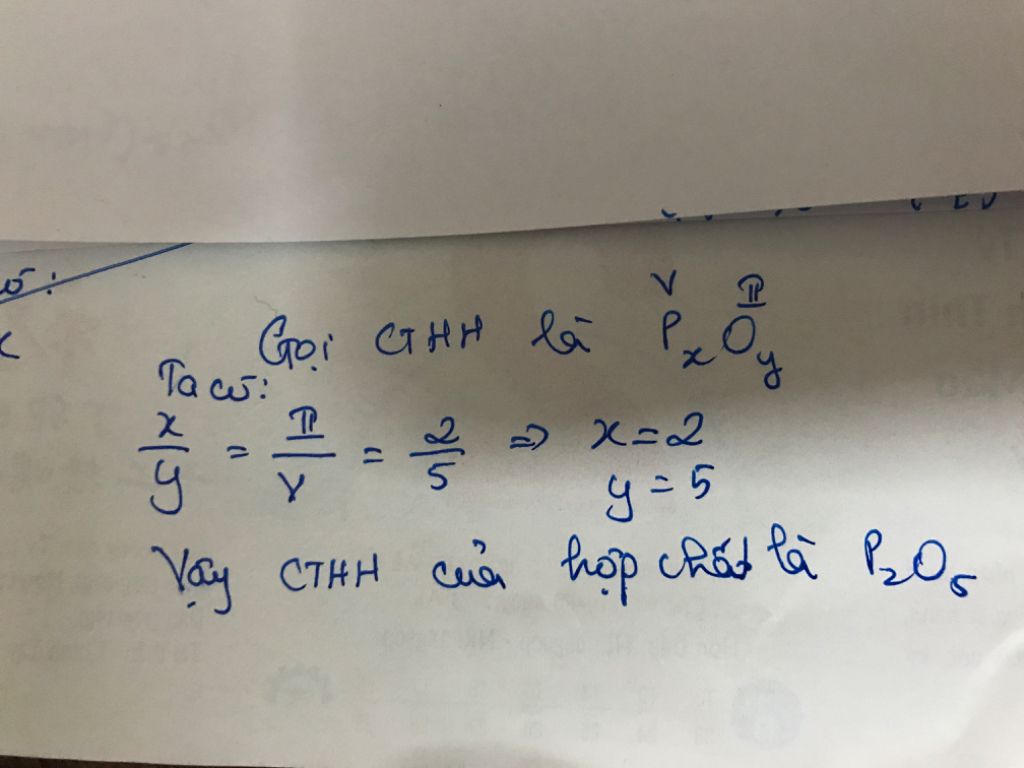 V II
Gọi CTHH là PxOy
Ta có:
x/y = II/V = 2/5 => x = 2
y = 5
Vậy CTHH của hợp chất là P2O5